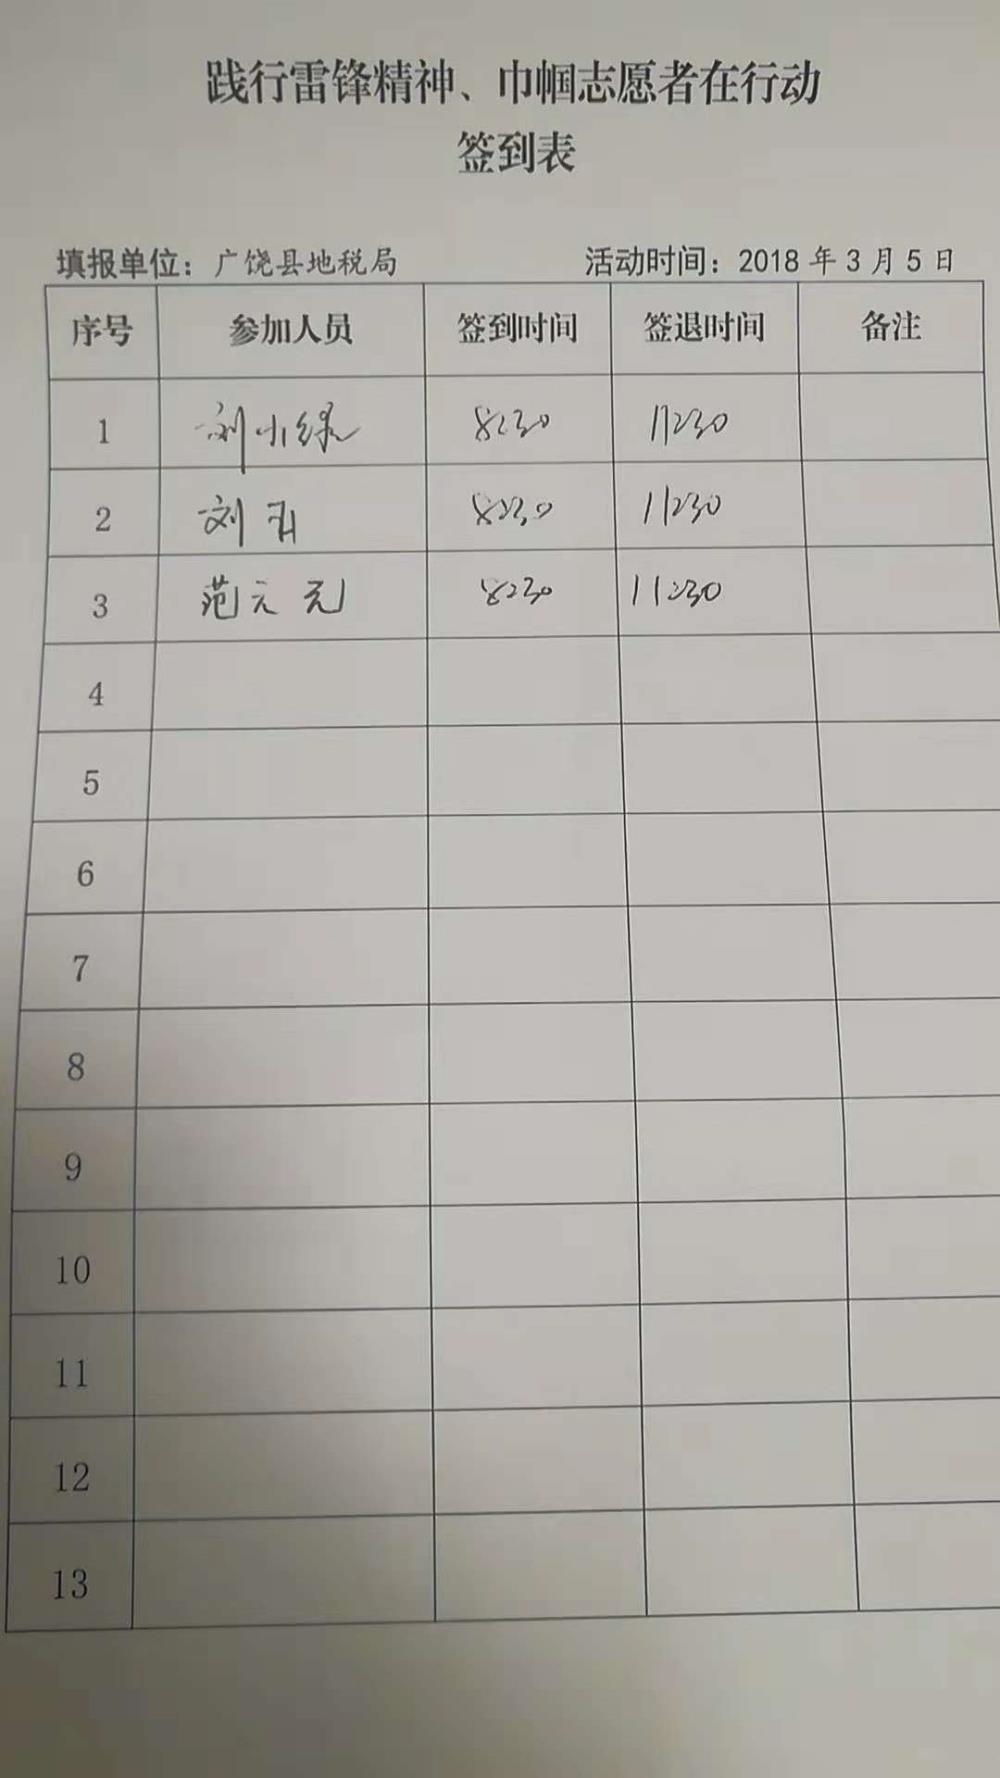 践行雷锋精神、巾帼志愿者在行动
签到表
填报单位：广饶县地税局 活动时间：2018 年 3 月 5 日
序号 参加人员 签到时间 签退时间 备注
1 刘小绿 8:30 11:30
2 刘 8:30 11:30
3 范元元 8:30 11:30
4
5
6
7
8
9
10
11
12
13